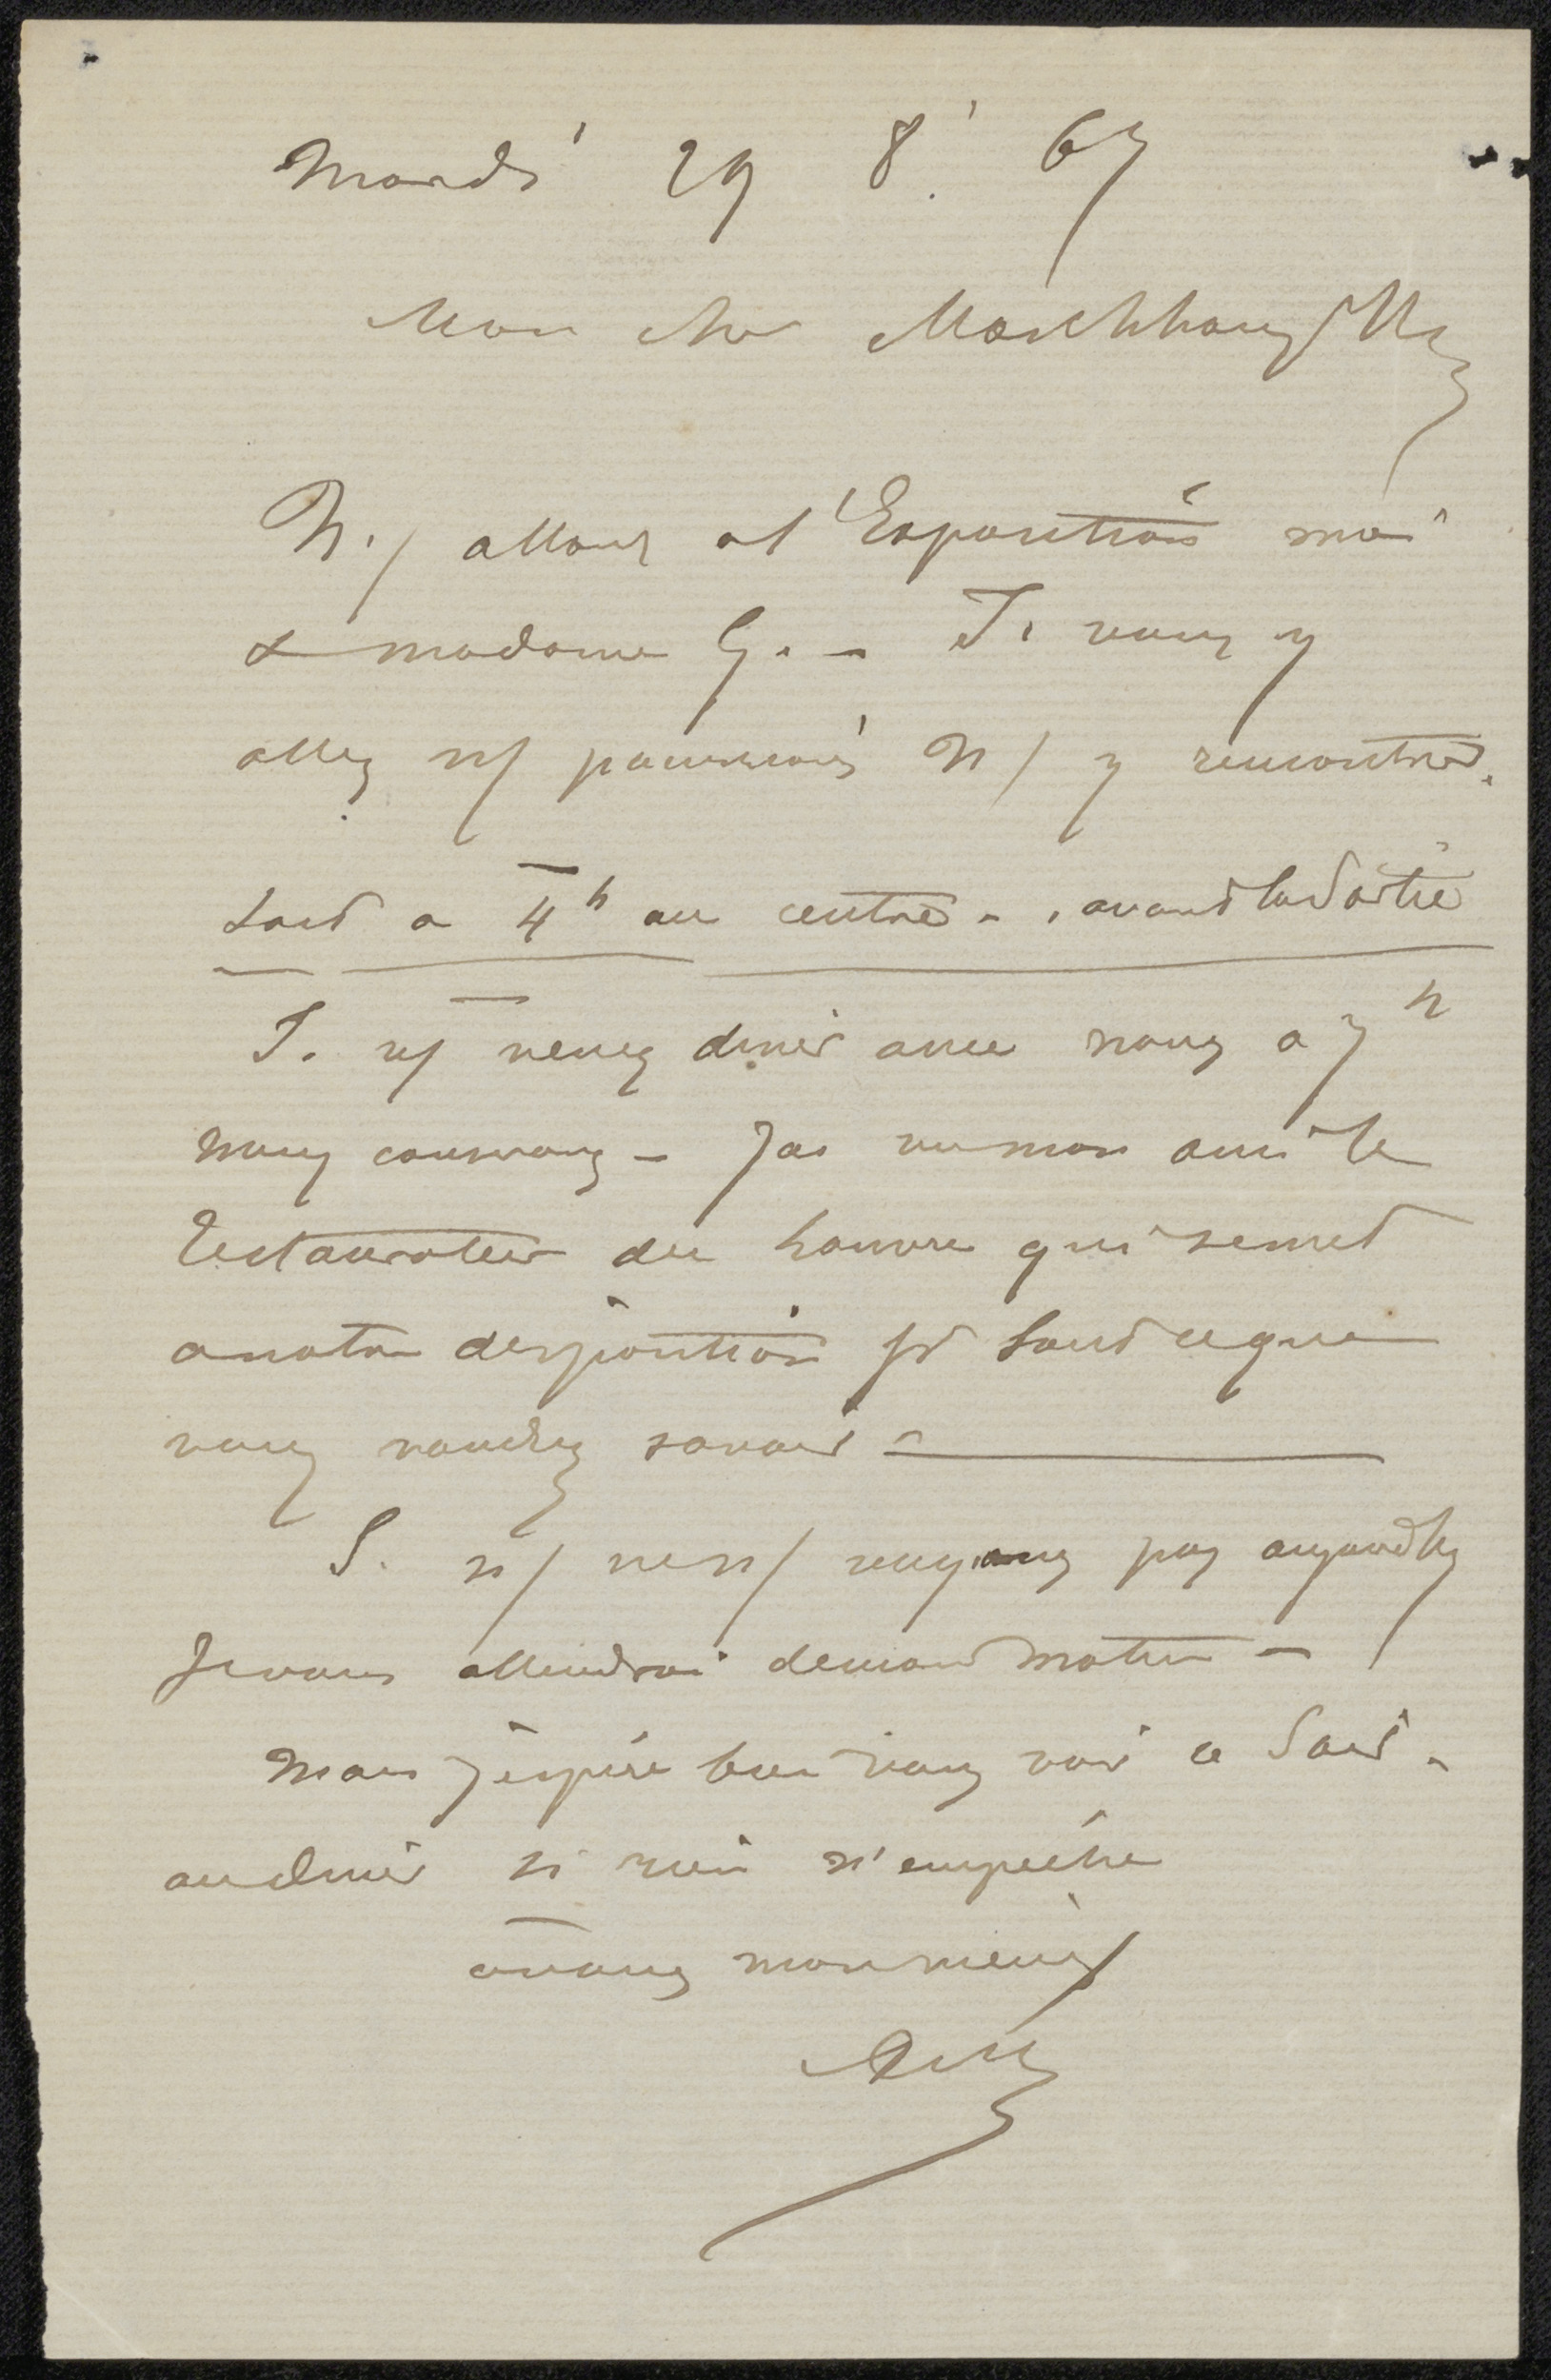 Mardi 29 8. 67
Mon cher
N./ allons a l'Exposition moi
& madame G. – Si vous y
allez v/ pourrions N/ y rencontrer.
soit a 4h au centre – . avant la Sortie
Si v/ venez diner avec nous a 7h
nous causerons – J'ai vu mon ami le
restaurateur du Louvre qui se met
a notre disposition pr tout ce que
vous voudrez savoir –
Si n/ ne n/ voyons pas aujourd'hui
Je vous attendrai demain matin –
mais j'espère bien vous voir ce Soir –
au diner si rien n'empêche